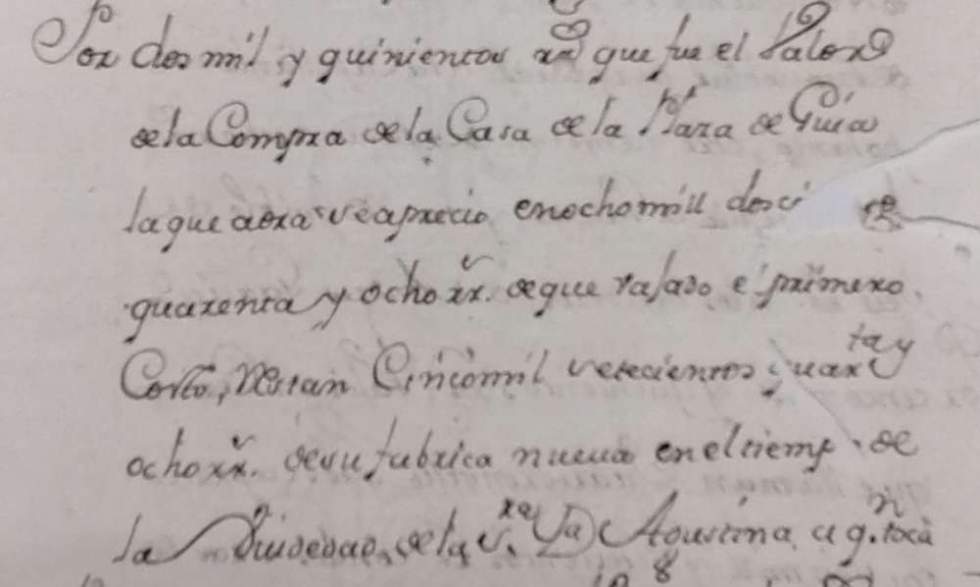 Por dos mil y quinientos rr.s que fue el Valor
de la Compra de la Casa de la Plaza de Guia
la que aora se aprecio en ocho mill dosci
quarenta y ocho rr.s de que rajado el primero
Costo, restan Cinco mil setecientos quar.ta y
ocho rr.s de su fabrica nueua en el tiemp de
la Viudedad de la S.ra D.a Agustina a q.n toca